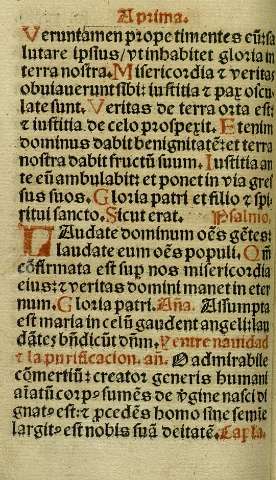 A prima.
Veruntamen prope timentes eũ: sa
lutare ipsius/ vt inhabitet gloria in
terra nostra. Misericordia ⁊ veritas
obuiauerunt sibi: iustitia ⁊ pax oscu
late sunt. Veritas de terra orta est:
⁊ iustitia de celo prospexit. Etenim
dominus dabit benignitatẽ: et terra
nostra dabit fructũ suum. Iustitia an
te eũ ambulabit: et ponet in via gres
sus suos. Gloria patri et filio ⁊ spi
ritui sancto. Sicut erat. Psalmo.
LAudate dominum oẽs gẽtes:
laudate eum oẽs populi. Qm̃
cõfirmata est sup nos misericordia
eius: ⁊ veritas domini manet in eter
num. Gloria patri. Aña. Assumpta
est maria in celũ gaudent angeli: lau
dãtes bñdicũt dñm. Y entre nauidad
⁊ la purificacion. añ. O admirabile
cõmertiũ: creator generis humani
aĩatũ corpꝰ sumẽs de v̓gine nasci di
gnatꝰ est: ⁊ ꝓcedẽs homo sine semĩe
largitꝰ est nobis suã deitatẽ. Capła.